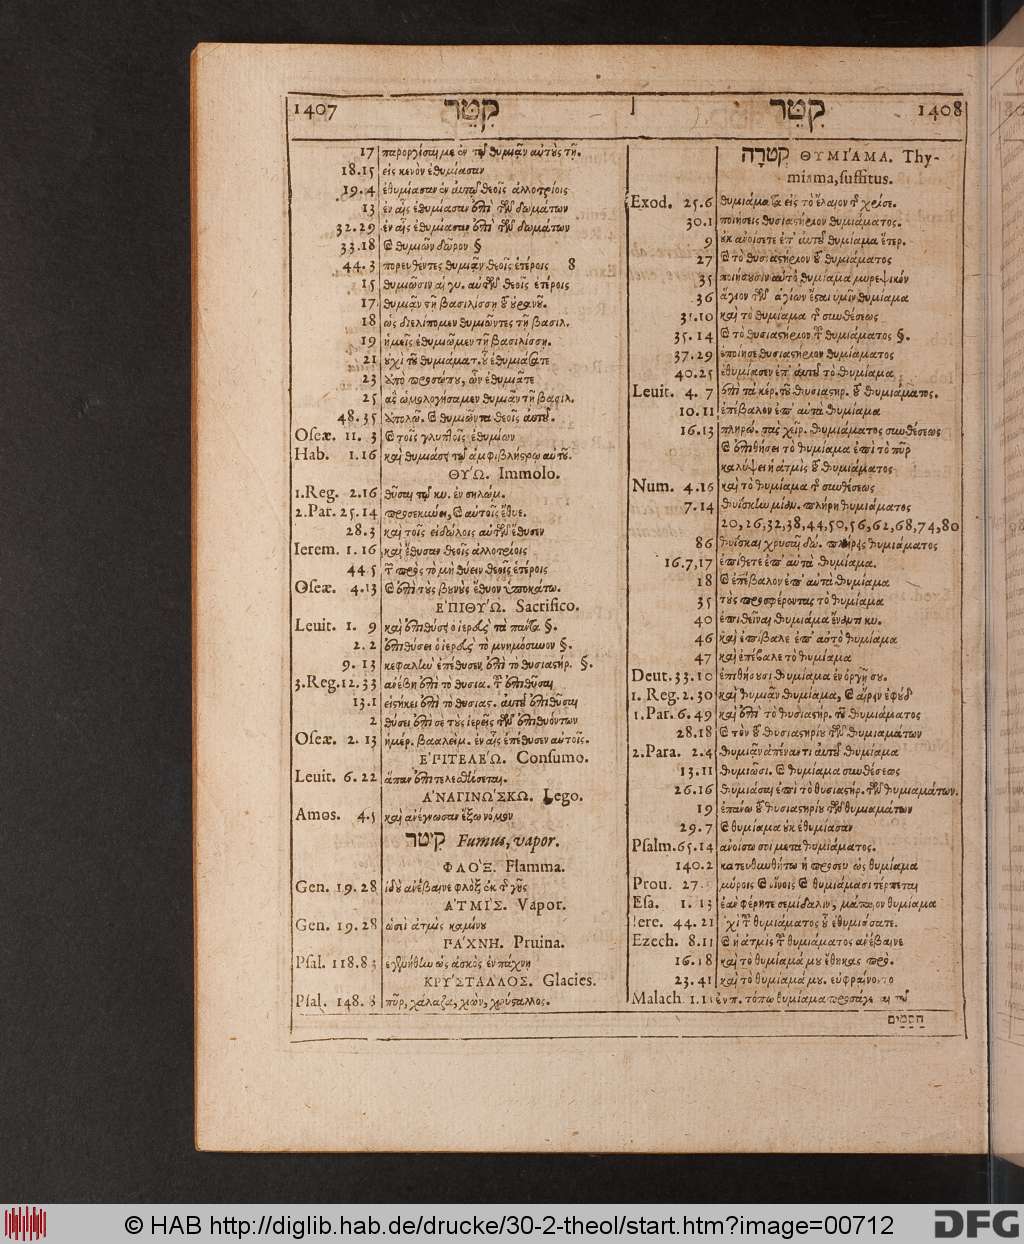 1407 קִטֵּר
17 παροργίσαι με ἐν τῷ θυμιᾶν αὐτοὺς τῇ.
18.15 εἰς κενὸν ἐθυμίασαν
19.4 ἐθυμίασαν ἐν αὐτῷ θεοῖς ἀλλοτρίοις
13 ἐν αἷς ἐθυμίασαν ἐπὶ τῶν δωμάτων
32.29 ἐν αἷς ἐθυμίασαν ἐπὶ τῶν δωμάτων
33.18 & θυμιῶν δῶρον §
44.3 πορευθέντες θυμιᾶν θεοῖς ἑτέροις 8
15 θυμιῶσιν αἱ γυ. αὐτῶν θεοῖς ἑτέροις
17 θυμιᾶν τῇ βασιλίσσῃ τοῦ οὐρανοῦ.
18 ὡς διελίπομεν θυμιῶντες τῇ βασιλ.
19 ἡμεῖς ἐθυμιῶμεν τῇ βασιλίσσῃ.
21 οὐχὶ τοῦ θυμιάματ. οὗ ἐθυμιάσατε
23 ἀπὸ προσώπου, ὧν ἐθυμιᾶτε
25 ἃς ὡμολογήσαμεν θυμιᾶν τῇ βασιλ.
48.35 & θυμιῶντα θεοῖς αὐτοῦ.
Oseæ. 11. 3 & τοῖς γλυπτοῖς ἐθυμίων
Hab. 1.16 καὶ θυμιάσει τῷ ἀμφιβλήστρῳ αὐτοῦ.
ΘΥ´Ω. Immolo.
1.Reg. 2.16 θῦσαι τῷ κυ. ἐν σηλώμ.
2.Par. 25.14 προσεκύνει, & αὐτοῖς ἔθυε.
28.3 καὶ τοῖς εἰδώλοις αὐτῶν ἔθυεν
Ierem. 1.16 καὶ ἔθυσαν θεοῖς ἀλλοτρίοις
44 5 τοῦ πρὸς τὸ μὴ θύειν θεοῖς ἑτέροις
Oseæ. 4.13 & ἐπὶ τοὺς βουνοὺς ἔθυον ὑποκάτω.
Ε᾿ΠΙΘΥ´Ω. Sacrifico.
Leuit. 1. 9 καὶ ἐπιθύσει ὁ ἱερεὺς τὰ πάντα §.
2. 2 ἐπιθύσει ὁ ἱερεὺς τὸ μνημόσυνον §.
9. 13 κεφαλὴν ἐπέθυσεν ἐπὶ τὸ θυσιαστήρ. §.
3.Reg.12.33 ἀνέβη ἐπὶ τὸ θυσια. τοῦ ἐπιθῦσαι
13.1 εἱστήκει ἐπὶ τὸ θυσιας. αὐτοῦ ἐπιθῦσαι
2 θύσει ἐπὶ σὲ τοὺς ἱερεῖς τῶν ἐπιθυόντων
Oseæ. 2. 13 ἡμέρ. βααλείμ. ἐν αἷς ἐπέθυσεν αὐτοῖς.
Ε᾿ΠΙΤΕΛΕ´Ω. Consumo.
Leuit. 6. 22 ἅπαν ἐπιτελεσθήσεται.
Α᾿ΝΑΓΙΝΩ´ΣΚΩ. Lego.
Amos. 4.5 καὶ ἀνέγνωσαν ἔξω νόμον
קִיטֹר Fumus, vapor.
ΦΛΟ´Ξ. Flamma.
Gen. 19. 28 ἰδοὺ ἀνέβαινε φλὸξ ἐκ τῆς γῆς
Α᾿ΤΜΙ´Σ. Vapor.
Gen. 19.28 ὡσεὶ ἀτμὶς καμίνου
ΠΑ´ΧΝΗ. Pruina.
Psal. 118.83 ἐγενήθην ὡς ἀσκὸς ἐν πάχνῃ
ΚΡΥ´ΣΤΑΛΛΟΣ. Glacies.
Psal. 148. 8 πῦρ, χάλαζα, χιὼν, κρύσταλλος.
קִטֵּר 1408
קְטֹרָה ΘΥΜΙ´ΑΜΑ. Thy-
miama, suffitus.
Exod. 25.6 θυμίαμα εἰς τὸ ἔλαιον τῆς χρίσε.
30.1 ποιήσεις θυσιαστήριον θυμιάματος.
9 οὐκ ἀνοίσετε ἐπ᾿ αὐτοῦ θυμίαμα ἕτερ.
27 & τὸ θυσιαστήριον τοῦ θυμιάματος
35 ποιήσουσιν αὐτὸ θυμίαμα μυρεψικὸν
36 ἅγιον τῶν ἁγίων ἔσται ὑμῖν θυμίαμα
31.10 καὶ τὸ θυμίαμα τῆς συνθέσεως
35.14 & τὸ θυσιαστήριον τοῦ θυμιάματος §.
37.29 ἐποίησε θυσιαστήριον θυμιάματος
40.25 ἐθυμίασεν ἐπ᾿ αὐτοῦ τὸ θυμίαμα
Leuit. 4. 7 ἐπὶ τὰ κέρ. τοῦ θυσιαστηρ. τοῦ θυμιάματος.
10.11 ἐπέβαλον ἐπ᾿ αὐτὰ θυμίαμα
16.13 πληρώ. τὰς χεῖρ. θυμιάματος συνθέσεως
& ἐπιθήσει τὸ θυμίαμα ἐπὶ τὸ πῦρ
καλύψει ἡ ἀτμὶς τοῦ θυμιάματος
Num. 4.16 καὶ τὸ θυμίαμα τῆς συνθέσεως
7.14 θυΐσκην μίαν. πλήρη θυμιάματος
20,26,32,38,44,50,56,62,68,74,80
86 θυΐσκαι χρυσαῖ δώ. πλήρεις θυμιάματος
16.7,17 ἐπίθετε ἐπ᾿ αὐτὰ θυμίαμα.
18 & ἐπέβαλον ἐπ᾿ αὐτὰ θυμίαμα
35 τοὺς προσφέροντας τὸ θυμίαμα
40 ἐπιθεῖναι θυμίαμα ἔναντι κυ.
46 καὶ ἐπίβαλε ἐπ᾿ αὐτὸ θυμίαμα
47 καὶ ἐπέβαλε τὸ θυμίαμα
Deut. 33.10 ἐπιθήσουσι θυμίαμα ἐν ὀργῇ σου.
1. Reg. 2.30 καὶ θυμιᾶν θυμίαμα, & αἴρειν ἐφοὺδ
1.Par. 6.49 καὶ ἐπὶ τὸ θυσιαστήρ. τοῦ θυμιάματος
28.18 & τὸν τοῦ θυσιαστηρίου τῶν θυμιαμάτων
2.Para. 2.4 θυμιᾶν ἀπέναντι αὐτοῦ θυμίαμα
13.11 θυμιῶσι. & θυμίαμα συνθέσεως
26.16 θυμιάσαι ἐπὶ τὸ θυσιαστηρ. τῶν θυμιαμάτων.
19 ἐπάνω τοῦ θυσιαστηρίου τῶν θυμιαμάτων
29.7 & θυμίαμα οὐκ ἐθυμίασαν
Psalm.65.14 ἀνοίσω σοι μετὰ θυμιάματος.
140.2 κατευθυνθήτω ἡ προσευ ὡς θυμίαμα
Prou. 27. μύροις & οἴνοις & θυμιάμασι τέρπεται
Esa. 1. 13 ἐὰν φέρητε σεμίδαλιν, μάταιον θυμίαμα
Iere. 44. 21 χὶ τοῦ θυμιάματος οὗ ἐθυμιάσατε.
Ezech. 8.11 & ἡ ἀτμὶς τοῦ θυμιάματος ἀνέβαινε
16.18 καὶ τὸ θυμίαμά μου ἔθηκας πρὸ.
23.41 καὶ τὸ θυμίαμά μου. εὐφραίνοντο
Malach. 1.11 ἐν π. τόπῳ θυμίαμα προσάγεται τῷ
הַסַּמִּים
© HAB http://diglib.hab.de/drucke/30-2-theol/start.htm?image=00712
DFG